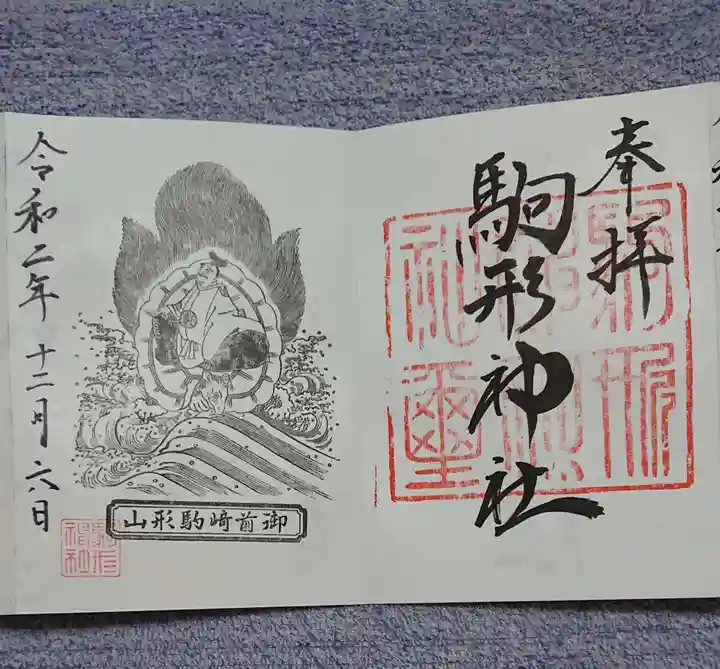 奉拝
駒形神社
令和二年十二月六日
御前崎駒形山